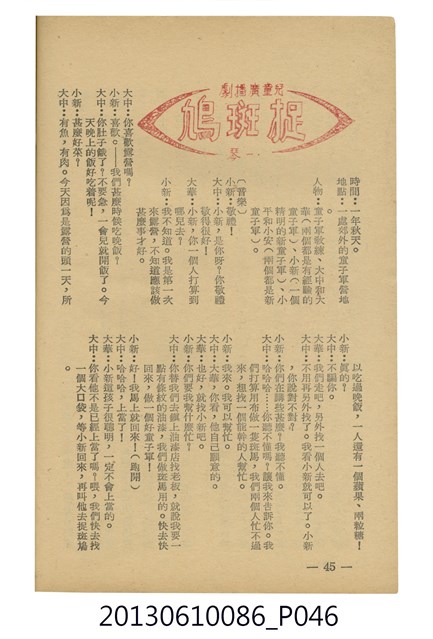 兒童廣播劇
捉斑鳩
一琴
時間：一年秋天。
地點：一處郊外的童子軍營地
。
人物：童子軍教練、大中和大
華（兩個都是有經驗的
童子軍）、小新（一個
精明的新童子軍）、小
平和小安（兩個都是新
童子軍）。
（音樂）
小新：敬禮！
大中：小新，是你呀？你敬禮
敬得很好！
大華：小新，你一個人打算到
哪兒去？
小新：我不知道。我是第一次
來露營，不知道應該做
甚麼事才好。
大中：你喜歡露營嗎？
小新：喜歡。——我們甚麼時候吃晚飯？
大中：你肚子餓了？不要急，一會兒就開飯了。今
天晚上的飯好吃着呢！
小新：甚麼好菜？
大中：有魚，有肉。今天因為是露營的頭一天，所
以吃過晚飯，一人還有一個蘋果、兩粒糖！
小新：眞的？
大中：不騙你。
大華：我們走吧，另外找一個人去吧。
大中：不用再另外找了。我看小新就可以了。小新
，你說對不對？
小新：你們在講些甚麼？我聽不懂。
大中：哈哈哈……你聽不懂嗎？讓我來告訴你。我
們打算用布做一隻斑馬，我們兩個人忙不過
來，想找一個能幹的人幫忙。
小新：我來。我可以幫忙。
大中：大華，你看，他自己願意的。
大華：也好，就找小新吧。
小新：你們要我幫什麼忙？
大中：你替我們去鎮上油漆店找老板，就說我要一
點有條紋的油漆，我們做斑馬用的。快去快
回來，做一個好童子軍！
小新：好！我馬上就回來！（跑開）
大中：哈哈哈，上當了！
大華：小新這孩子很聰明，一定不會上當的。
大中：你看他不是已經上當了嗎？喂，我們快去找
一個大口袋，等小新回來，再叫他去捉斑鳩
。
— 45 —
20130610086_P046